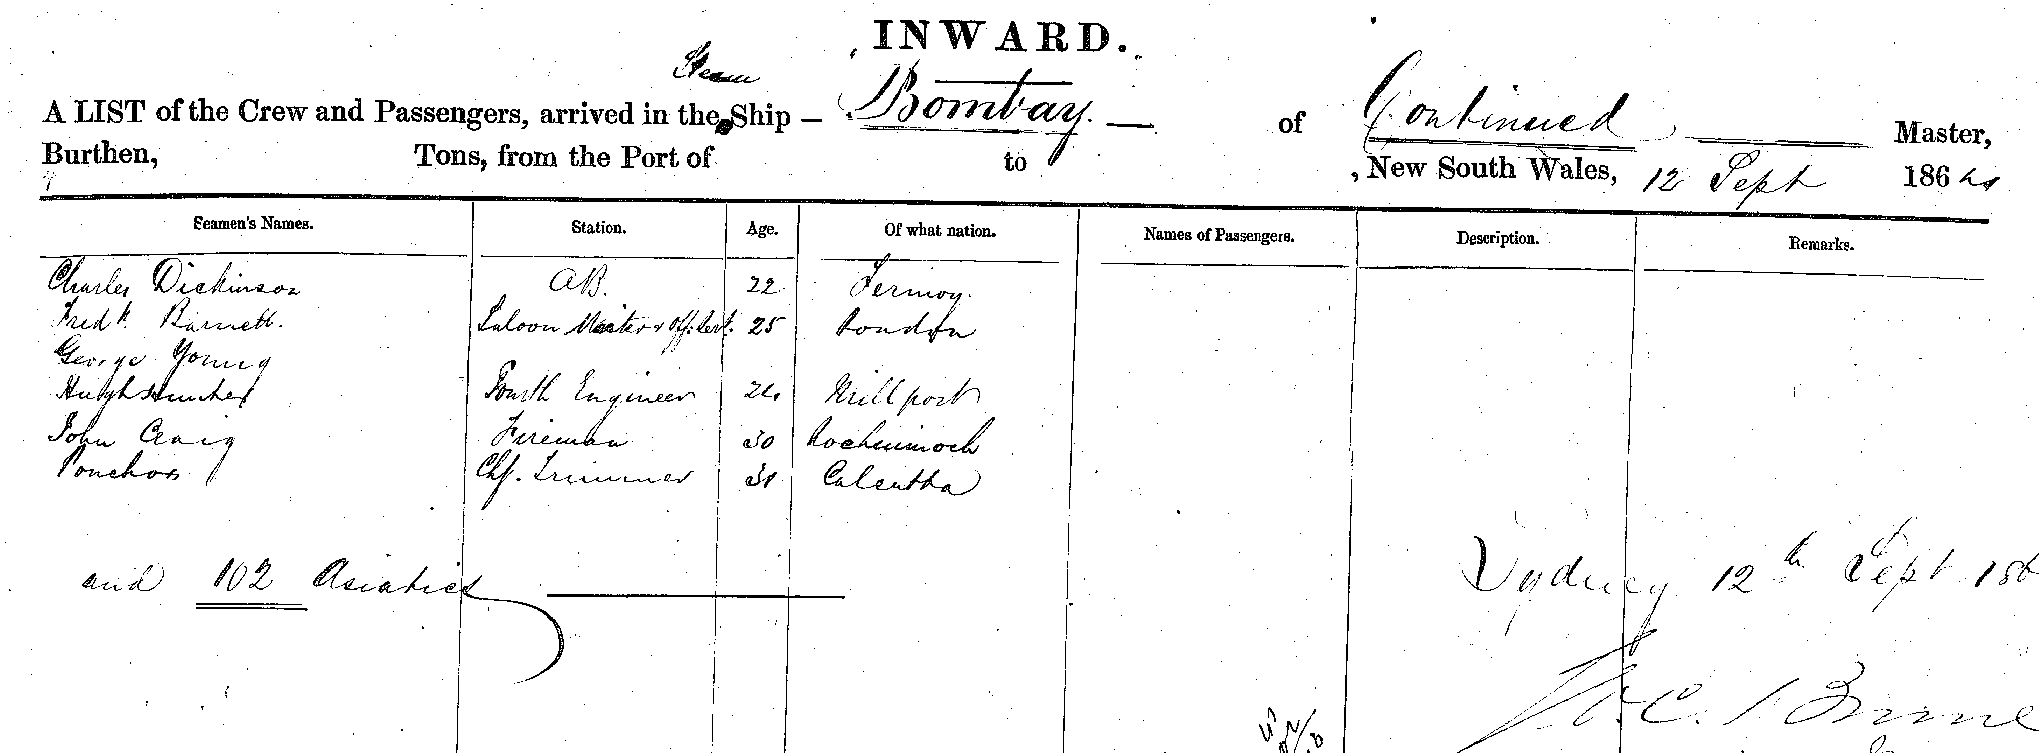 INWARD.
Steam
A LIST of the Crew and Passengers, arrived in the Ship – Bombay. — of Continued — Master,
Burthen, Tons, from the Port of to , New South Wales, 12 Sept 1864
Seamen's Names. Station. Age. Of what nation. Names of Passengers. Description. Remarks.
Charles Dickinson AB. 22 Fermoy.
Fredk. Barnett. Saloon 25 London
George Young
Hugh Hunter Fourth Engineer 24 Millport
John Craig Fireman 30
Ponchoo Chf. Trimmer 31 Calcutta
and 102 Asiatics
Sydney 12th Sept 186